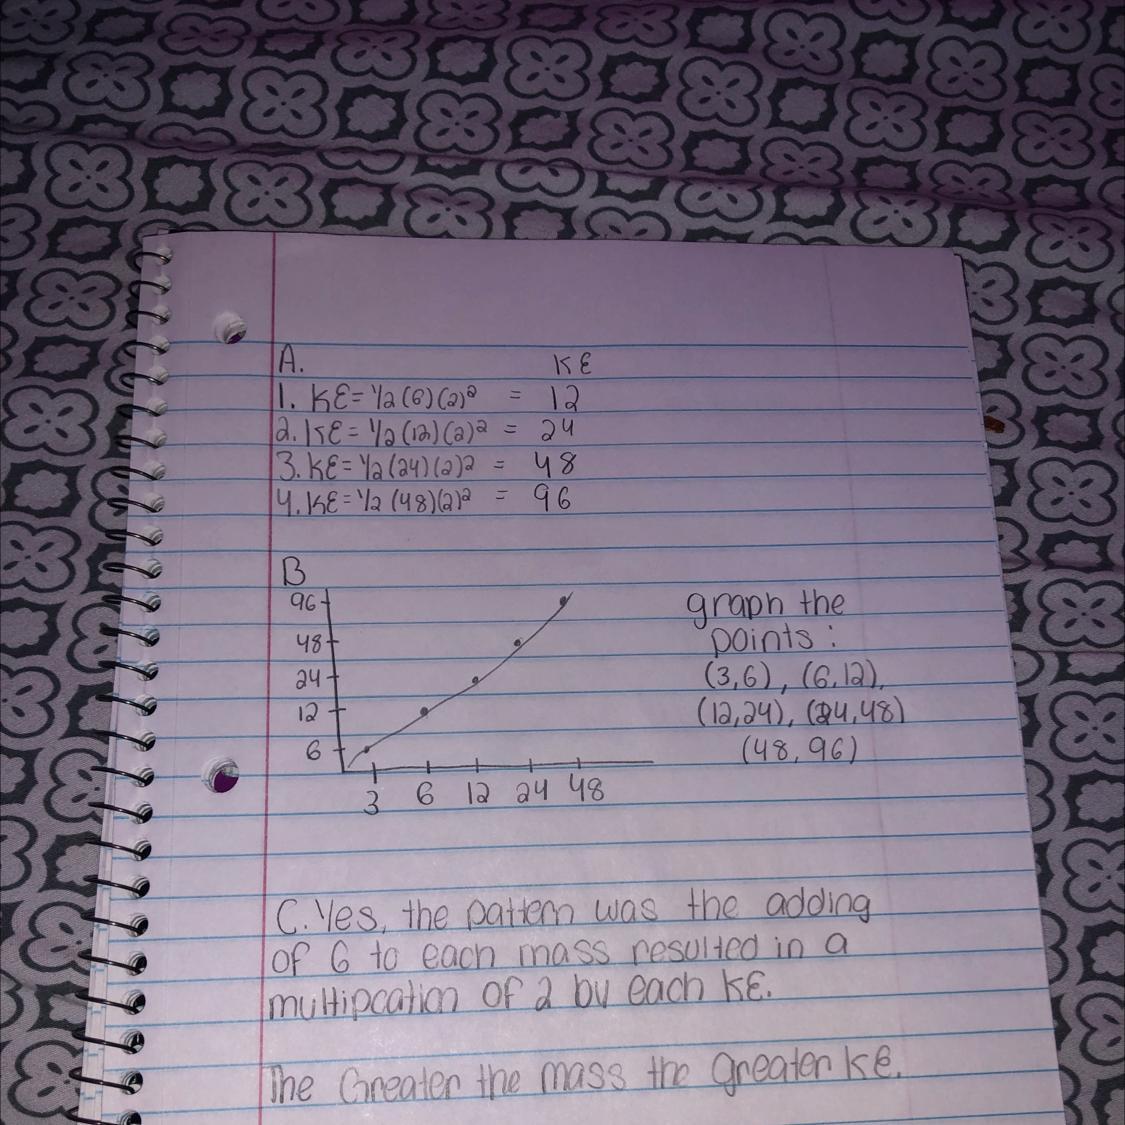 A. KE
1. KE=1/2(6)(2)² = 12
2. KE= 1/2(12)(2)² = 24
3. KE=1/2(24)(2)² = 48
4. KE=1/2(48)(2)² = 96
B
96
48
24
12
6
3 6 12 24 48
graph the
points:
(3,6), (6,12),
(12,24), (24,48)
(48,96)
C. Yes, the pattern was the adding
of 6 to each mass resulted in a
multipcation of 2 by each KE.
The Greater the mass the greater KE.